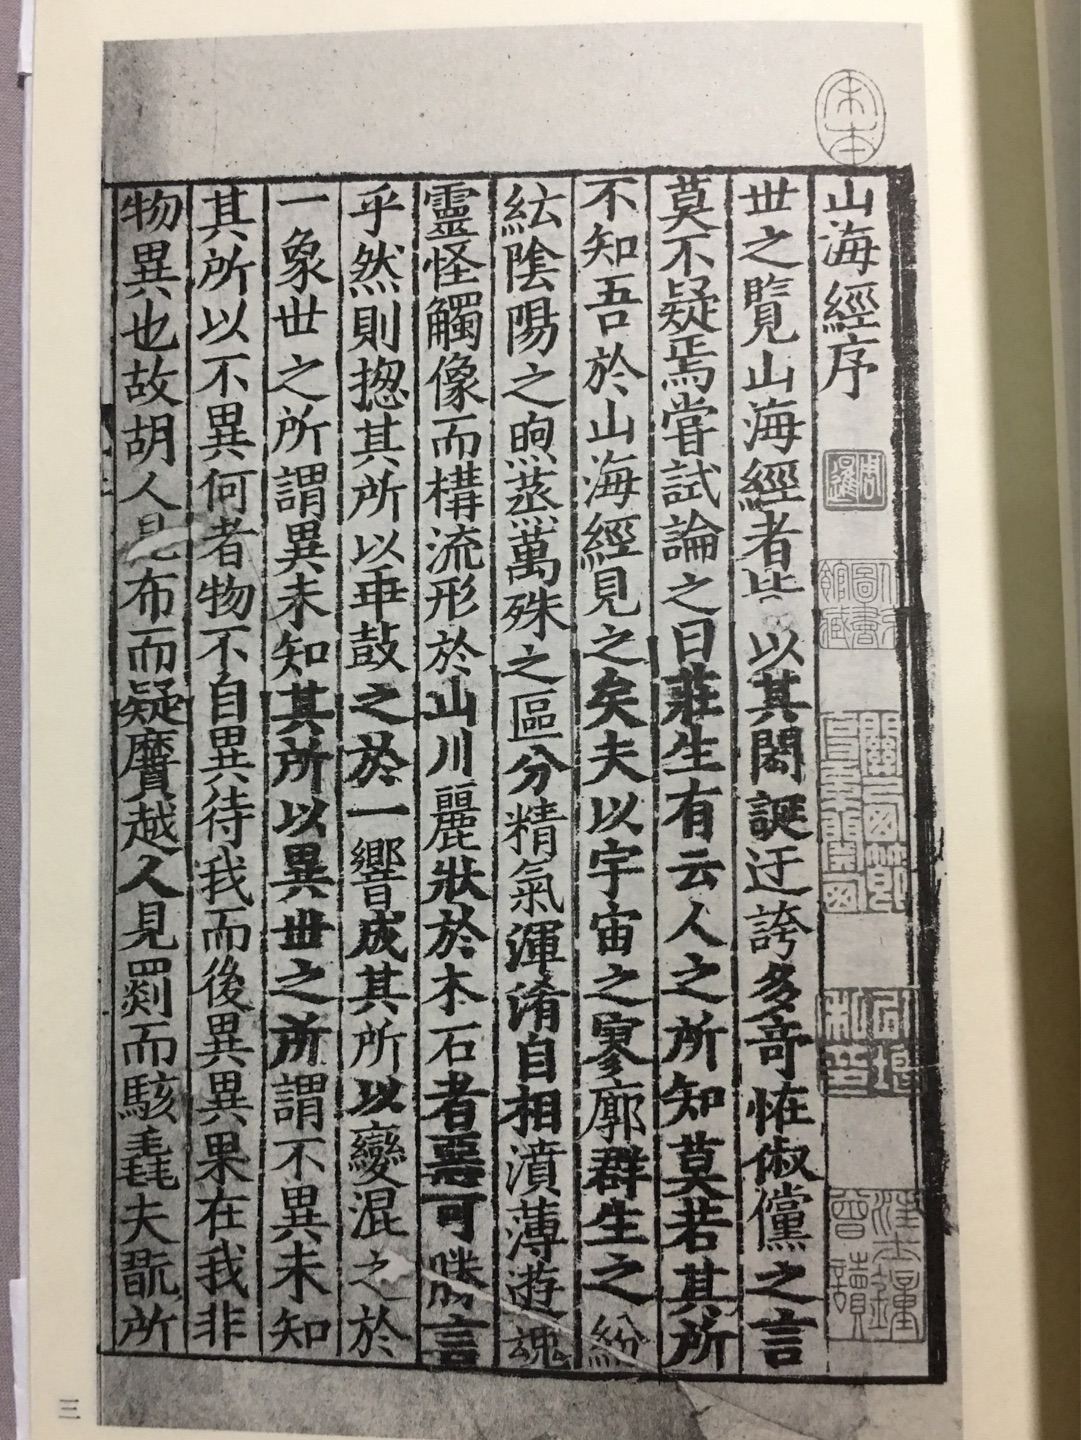 宋本
山海經序
周暹
世之覽山海經者皆以其閎誕迂誇多竒恠俶儻之言
莫不疑焉嘗試論之曰莊生有云人之所知莫若其所
不知吾於山海經見之矣夫以宇宙之寥廓群生之紛
紜隂陽之煦蒸萬殊之區分精氣渾淆自相濆薄遊魂
靈怪觸像而構流形於山川麗狀於木石者惡可勝言
乎然則揔其所以乖鼓之於一響成其所以變混之於
一象世之所謂異未知其所以異世之所謂不異未知
其所以不異何者物不自異待我而後異異果在我非
物異也故胡人見布而疑黂越人見罽而駭毳夫翫所
三